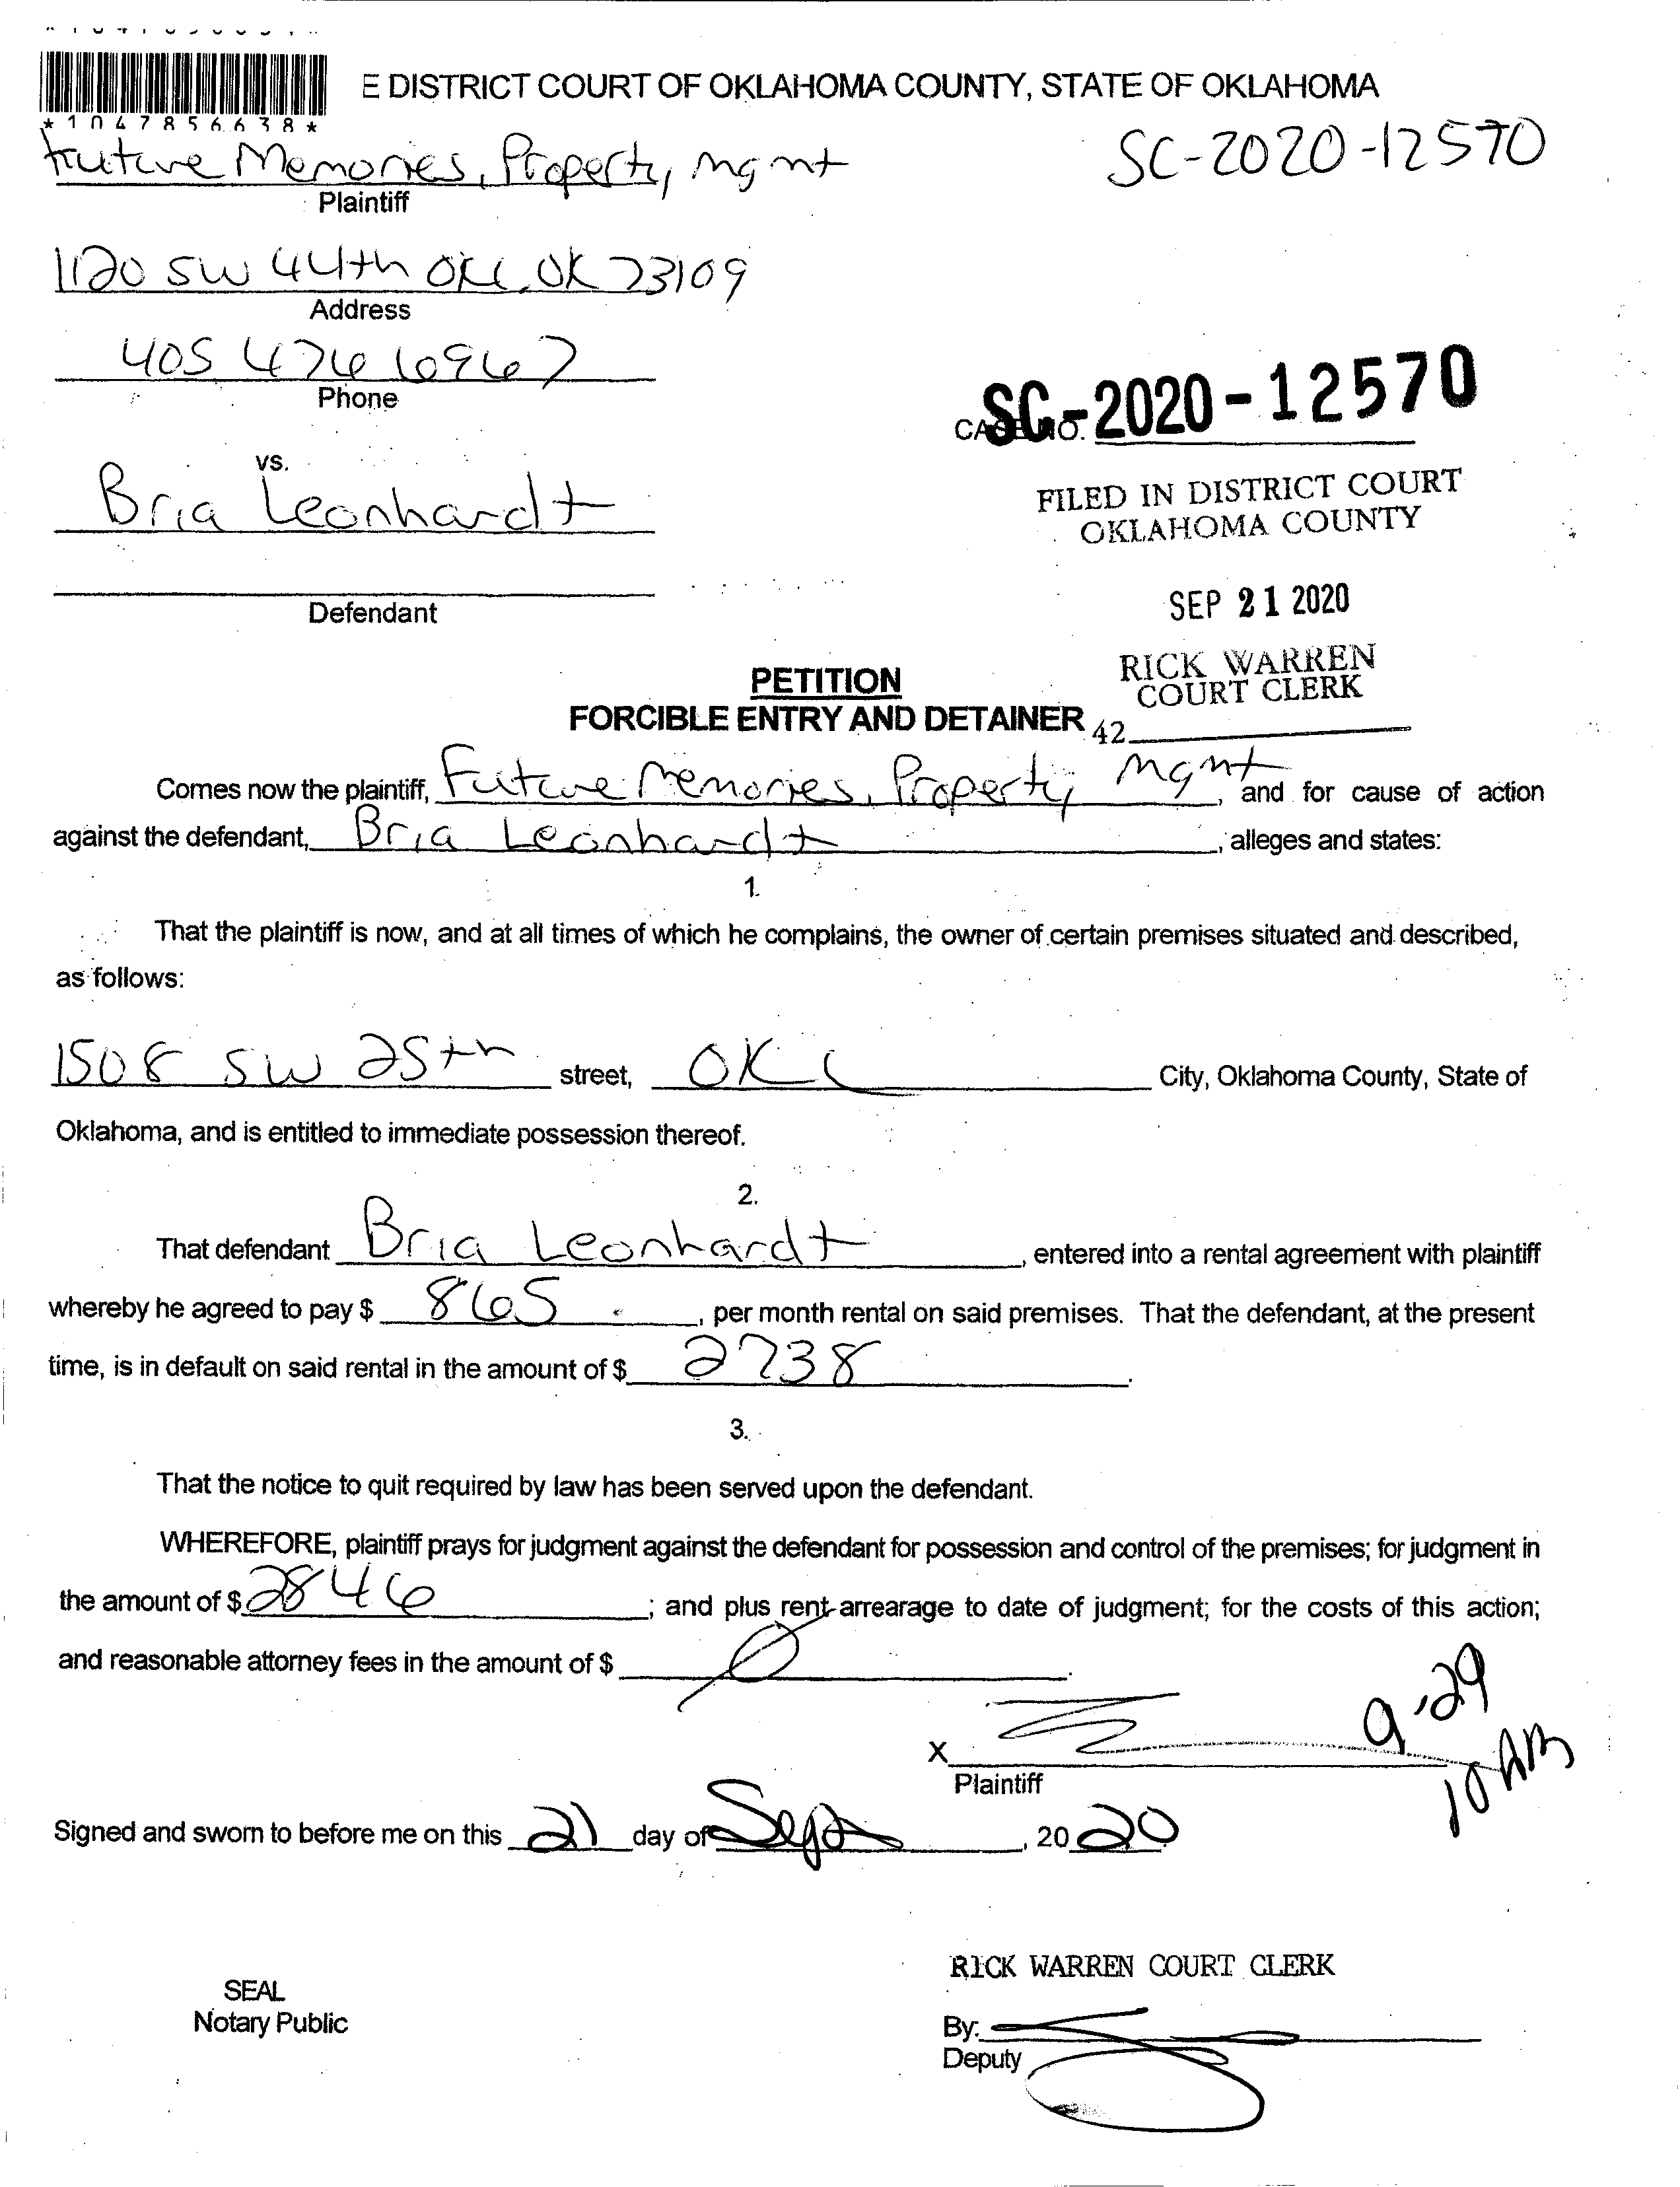 E DISTRICT COURT OF OKLAHOMA COUNTY, STATE OF OKLAHOMA
*1047856638*
Future Memories, Property Mgmt
SC-2020-12570
Plaintiff
1120 SW 44th OKC, OK 73109
Address
405 474 6967
Phone
SC-2020-12570
CASE NO.
vs.
Bria Leonhardt
FILED IN DISTRICT COURT
OKLAHOMA COUNTY
Defendant
SEP 21 2020
RICK WARREN
COURT CLERK
PETITION
FORCIBLE ENTRY AND DETAINER
42
Comes now the plaintiff, Future Memories, Property Mgmt, and for cause of action
against the defendant, Bria Leonhardt, alleges and states:
1.
That the plaintiff is now, and at all times of which he complains, the owner of certain premises situated and described,
as follows:
1508 SW 25th street, OKC City, Oklahoma County, State of
Oklahoma, and is entitled to immediate possession thereof.
2.
That defendant Bria Leonhardt, entered into a rental agreement with plaintiff
whereby he agreed to pay $ 865, per month rental on said premises. That the defendant, at the present
time, is in default on said rental in the amount of $ 2738.
3.
That the notice to quit required by law has been served upon the defendant.
WHEREFORE, plaintiff prays for judgment against the defendant for possession and control of the premises; for judgment in
the amount of $ 2846; and plus rent arrearage to date of judgment; for the costs of this action;
and reasonable attorney fees in the amount of $ 0.
9-29
10 AM
X
Plaintiff
Signed and sworn to before me on this 21 day of Sept, 2020
RICK WARREN COURT CLERK
SEAL
Notary Public
By:
Deputy